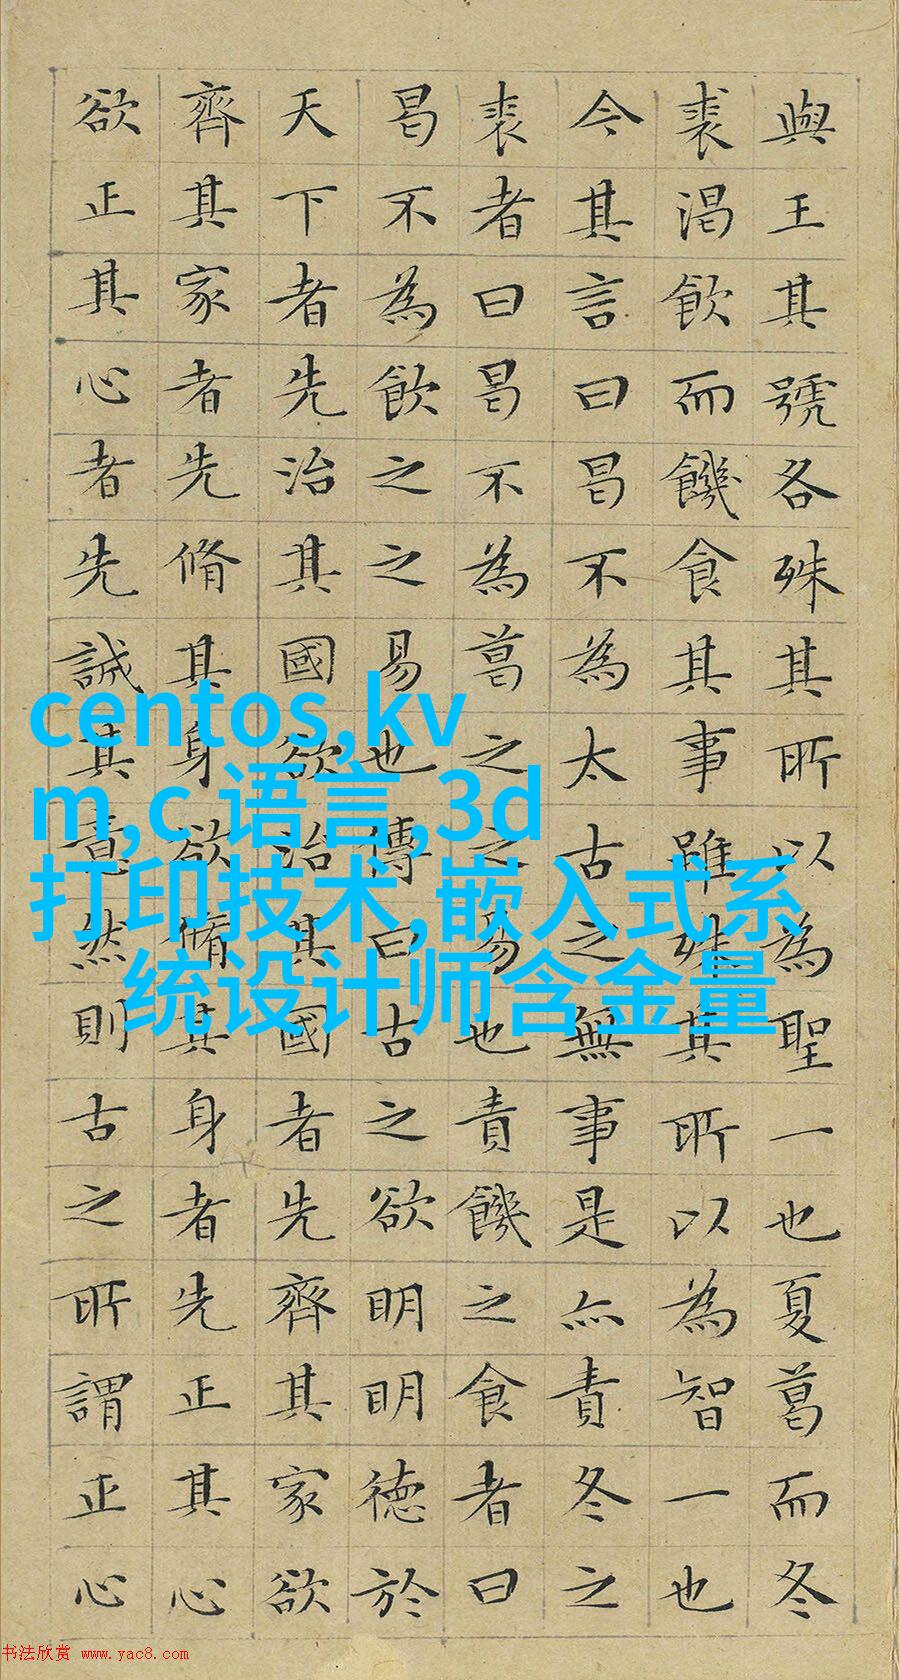 與王其號各殊其所以為聖一也夏葛而冬
裘渴飲而饑食其事雖殊其所以為智一也
今其言曰曷不為太古之無事是亦責冬之
裘者曰曷不為葛之之易也責饑之食者曰
曷不為飲之之易也傳曰古之欲明明德於
天下者先治其國欲治其國者先齊其家欲
齊其家者先脩其身欲脩其身者先正其心
欲正其心者先誠其意然則古之所謂正心
centos,kv
m,c 语言,3d
打印技术,嵌入式系
统设计师含金量
书法欣赏 www.yac8.com